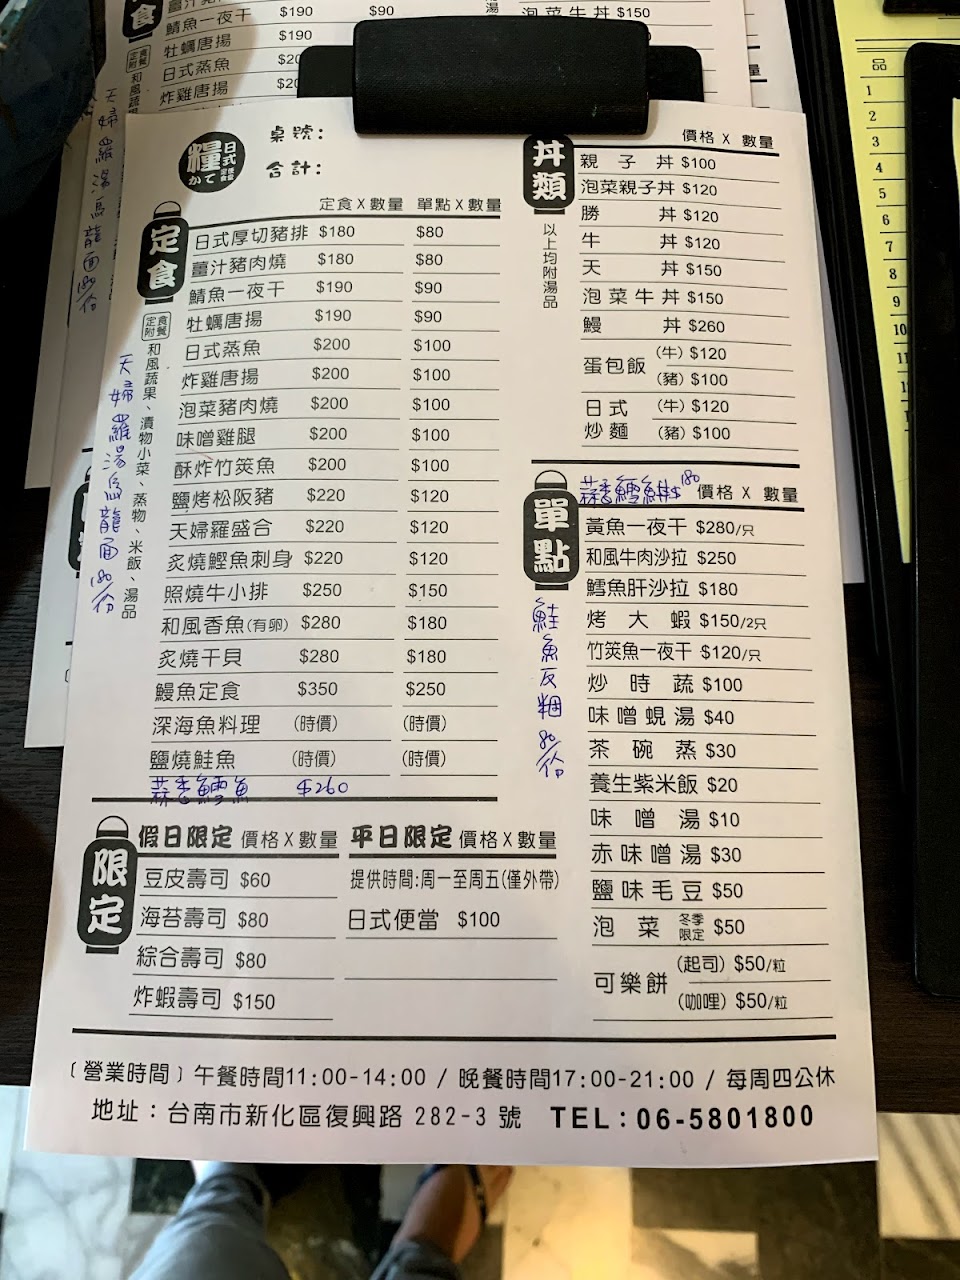 薑汁豬
鯖魚一夜干 $190 $90
牡蠣唐揚 $190
日式蒸魚
炸雞唐揚
泡菜牛丼 $150
品
1
2
3
4
5
6
7
8
9
10
糧 日式
かて 定食
桌號：
合計：
定食 X 數量 單點 X 數量
定食
日式厚切豬排 $180 $80
薑汁豬肉燒 $180 $80
鯖魚一夜干 $190 $90
牡蠣唐揚 $190 $90
日式蒸魚 $200 $100
炸雞唐揚 $200 $100
泡菜豬肉燒 $200 $100
味噌雞腿 $200 $100
酥炸竹筴魚 $200 $100
鹽烤松阪豬 $220 $120
天婦羅盛合 $220 $120
炙燒鰹魚刺身 $220 $120
照燒牛小排 $250 $150
和風香魚(有卵) $280 $180
炙燒干貝 $280 $180
鰻魚定食 $350 $250
深海魚料理 (時價) (時價)
鹽燒鮭魚 (時價) (時價)
蒜香鱈魚 $260
定食附餐
和風蔬果、漬物小菜、蒸物、米飯、湯品
天婦羅湯烏龍面180/份
限定
假日限定 價格 X 數量
豆皮壽司 $60
海苔壽司 $80
綜合壽司 $80
炸蝦壽司 $150
平日限定 價格 X 數量
提供時間:周一至周五(僅外帶)
日式便當 $100
丼類
以上均附湯品
價格 X 數量
親子丼 $100
泡菜親子丼 $120
勝丼 $120
牛丼 $120
天丼 $150
泡菜牛丼 $150
鰻丼 $260
蛋包飯 (牛) $120
(豬) $100
日式炒麵 (牛) $120
(豬) $100
單點
價格 X 數量
黃魚一夜干 $280/只
和風牛肉沙拉 $250
鱈魚肝沙拉 $180
烤大蝦 $150/2只
竹筴魚一夜干 $120/只
炒時蔬 $100
味噌蜆湯 $40
茶碗蒸 $30
養生紫米飯 $20
味噌湯 $10
赤味噌湯 $30
鹽味毛豆 $50
泡菜 冬季限定 $50
可樂餅 (起司) $50/粒
(咖哩) $50/粒
〔營業時間〕午餐時間11:00-14:00 / 晚餐時間17:00-21:00 / 每周四公休
地址：台南市新化區復興路 282-3 號 TEL：06-5801800